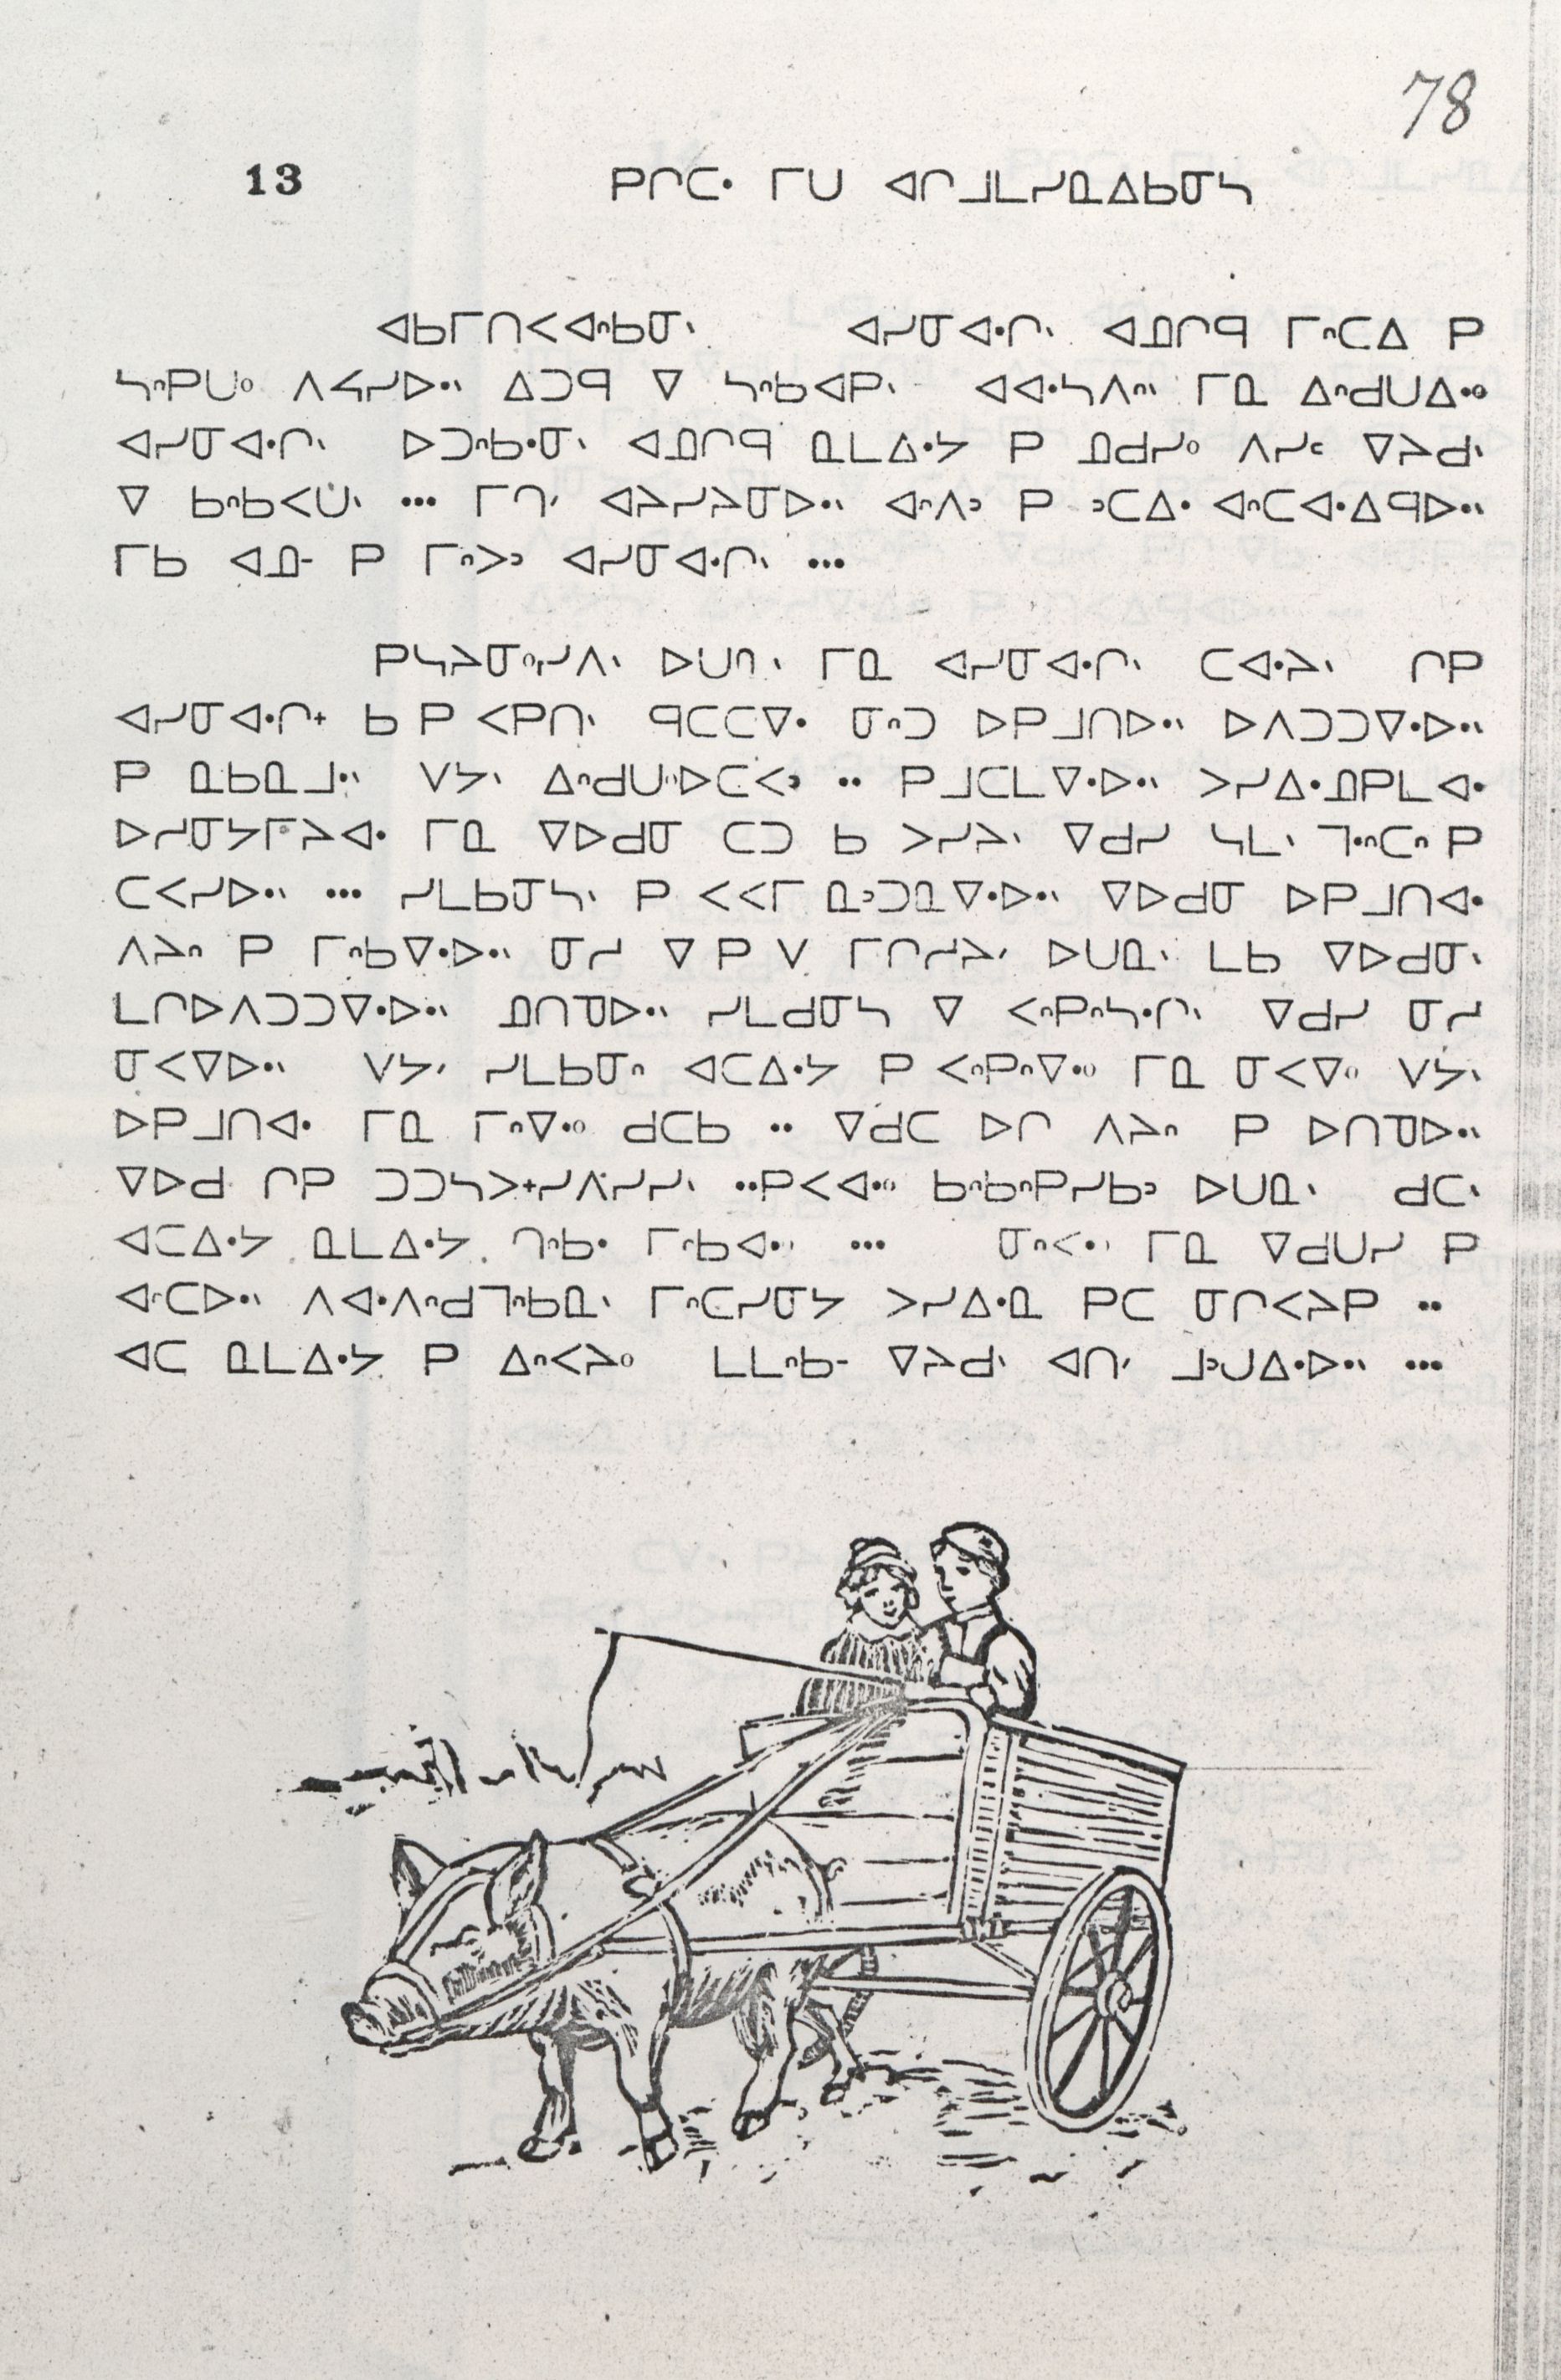 78
13 ᑭᒋᑕᐧ ᒥᑌ ᐊᒋᒧᒪᓯᓇᐃᑲᓂᓴ
ᐊᑲᒥᑎᐸᐊᐢᑲᓂᐠ ᐊᓯᓂᐊᐧᒋᐠ ᐊᓄᒋᑫ ᒥᐢᑕᐃ ᑭ
ᓴᐢᑭᑌᐤ ᐱᐹᓯᐅᐧᐠ ᐃᑐᑫ ᐁ ᓴᐢᑲᐊᑭᐠ ᐊᐊᐧᓴᐱᐢᐠ ᒥᓇ ᐃᐢᑯᑌᐃᐧᐤ
ᐊᓯᓂᐊᐧᒋᐠ ᐅᑐᐢᑲᐧᓂᐠ ᐊᓄᒋᑫ ᓇᒪᐃᐧᔭ ᑭ ᓄᑯᓯᐤ ᐱᓯᒼ ᐁᔨᑯᐠ
ᐁ ᑲᐢᑲᐸᑌᐠ ᒥᒉᐟ ᐊᔨᓯᔨᓂᐅᐧᐠ ᐊᐢᐱᐣ ᑭ ᐣᑕᐃᐧ ᐊᐢᑕᐊᐧᐃᑫᐅᐧᐠ
ᒥᑲ ᐊᓄᐨ ᑭ ᒥᐢᐳᐣ ᐊᓯᓂᐊᐧᒋᐠ
ᑭᓴᔨᓂᐤ ᓯᓯᐱᐠ ᐅᑌᓇᐠ ᒥᓇ ᐊᓯᓂᐊᐧᒋᐠ ᑕᐊᐧᔨᐠ ᒋᑭ
ᐊᓯᓂᐊᐧᒋᕀ ᑲ ᑭ ᐸᑭᑎᐠ ᑫᑕᑕᐁᐧ ᓂᐢᑐ ᐅᑭᒧᑎᐅᐧᐠ ᐅᐱᑐᑐᐁᐧᐅᐧᐠ
ᑭ ᓇᑲᓇᒧᐧᐠ ᐯᔭᐠ ᐃᐢᑯᑌᐤᐅᑕᐸᐣ ᑭᒧᑕᒪᐁᐧᐅᐧᐠ ᐳᓯᐃᐧᓄᑭᒪᐊᐧ
ᐅᓯᓂᔭᒥᔨᐊᐧ ᒥᓇ ᐁᐅᑯᓂ ᑕᑐ ᑲ ᐳᓯᔨᐠ ᐁᑯᓯ ᓴᒪᐠ ᒣᐧᐢᑕᐢ ᑭ
ᑕᐸᓯᐅᐧᐠ ᓯᒪᑲᓂᓴᐠ ᑭ ᐸᐸᒥ ᓇᐣᑐᓇᐁᐧᐅᐧᐠ ᐁᐅᑯᓂ ᐅᑭᒧᑎᐊᐧ
ᐱᔨᐢ ᑭ ᒥᐢᑲᐁᐧᐅᐧᐠ ᓂᓯ ᐁ ᑭ ᐯ ᒥᒋᓯᔨᐟ ᐅᑌᓇᐠ ᒪᑲ ᐁᐅᑯᓂᐠ
ᒪᒋᐅᐱᑐᑐᐁᐧᐅᐧᐠ ᓄᑎᑯᐅᐧᐠ ᓯᒪᑯᓂᓴ ᐁ ᐸᐢᑭᐢᓴᐧᒋᐠ ᐁᑯᓯ ᓂᓯ
ᓂᐸᐁᐅᐧᐠ ᐯᔭᐟ ᓯᒪᑲᓂᐢ ᐊᑕᐃᐧᔭ ᑭ ᐸᐢᑭᐢᐁᐧᐤ ᒥᓇ ᓂᐸᐁᐤ ᐯᔭᐠ
ᐅᑭᒧᑎᐊᐧ ᒥᓇ ᒥᐢᐁᐧᐤ ᑯᑕᑲ ᐁᑯᑕ ᐅᒋ ᐱᔨᐢ ᑭ ᐅᑎᑯᐅᐧᐠ
ᐁᐅᑯ ᒋᑭ ᑐᑐᓴᐳᕀᓯᐱᓯᓯᐠ ᑭᐸᐊᐧᐤ ᑲᐢᑲᐢᑭᓯᑲᐣ ᐅᑌᓇᐠ ᑯᑕᐠ
ᐊᑕᐃᐧᔭ ᓇᒪᐃᐧᔭ ᒉᐢᑲᐧ ᒥᐢᑲᐊᐧᐤ ᓂᐢᐸᐧᐤ ᒥᓇ ᐁᑯᑌᓯ ᑭ
ᐊᐢᑕᐅᐧᐠ ᐱᐊᐧᐱᐢᑯᒣᐢᑲᓇᐠ ᒥᐢᑕᓯᓂᔭ ᐳᓯᐃᐧᓇ ᑭᑕ ᓂᒋᐸᔨᑭ
ᐊᑕ ᓇᒪᐃᐧᔭ ᑭ ᐃᐢᐸᔨᐤ ᒪᒪᐢᑲᐨ ᐁᔨᑯᐠ ᐊᑎᐟ ᒧᐣᑌᐃᐧᐅᐧᐠ